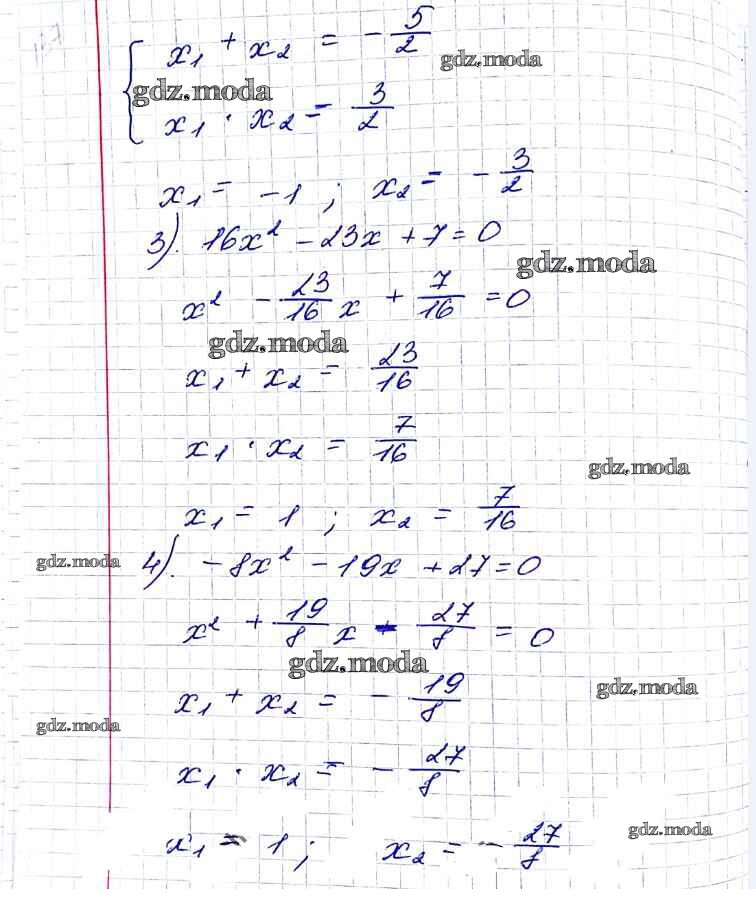 x₁ + x₂ = -5/2
gdz.moda
gdz.moda
x₁ · x₂ = 3/2
x₁ = -1 ; x₂ = -3/2
3). 16x² - 23x + 7 = 0
gdz.moda
x² - 23/16 x + 7/16 = 0
gdz.moda
x₁ + x₂ = 23/16
x₁ · x₂ = 7/16
gdz.moda
x₁ = 1 ; x₂ = 7/16
gdz.moda
4). -8x² - 19x + 27 = 0
x² + 19/8 x - 27/8 = 0
gdz.moda
gdz.moda
x₁ + x₂ = -19/8
gdz.moda
x₁ · x₂ = -27/8
gdz.moda
x₁ = 1 ; x₂ = -27/8